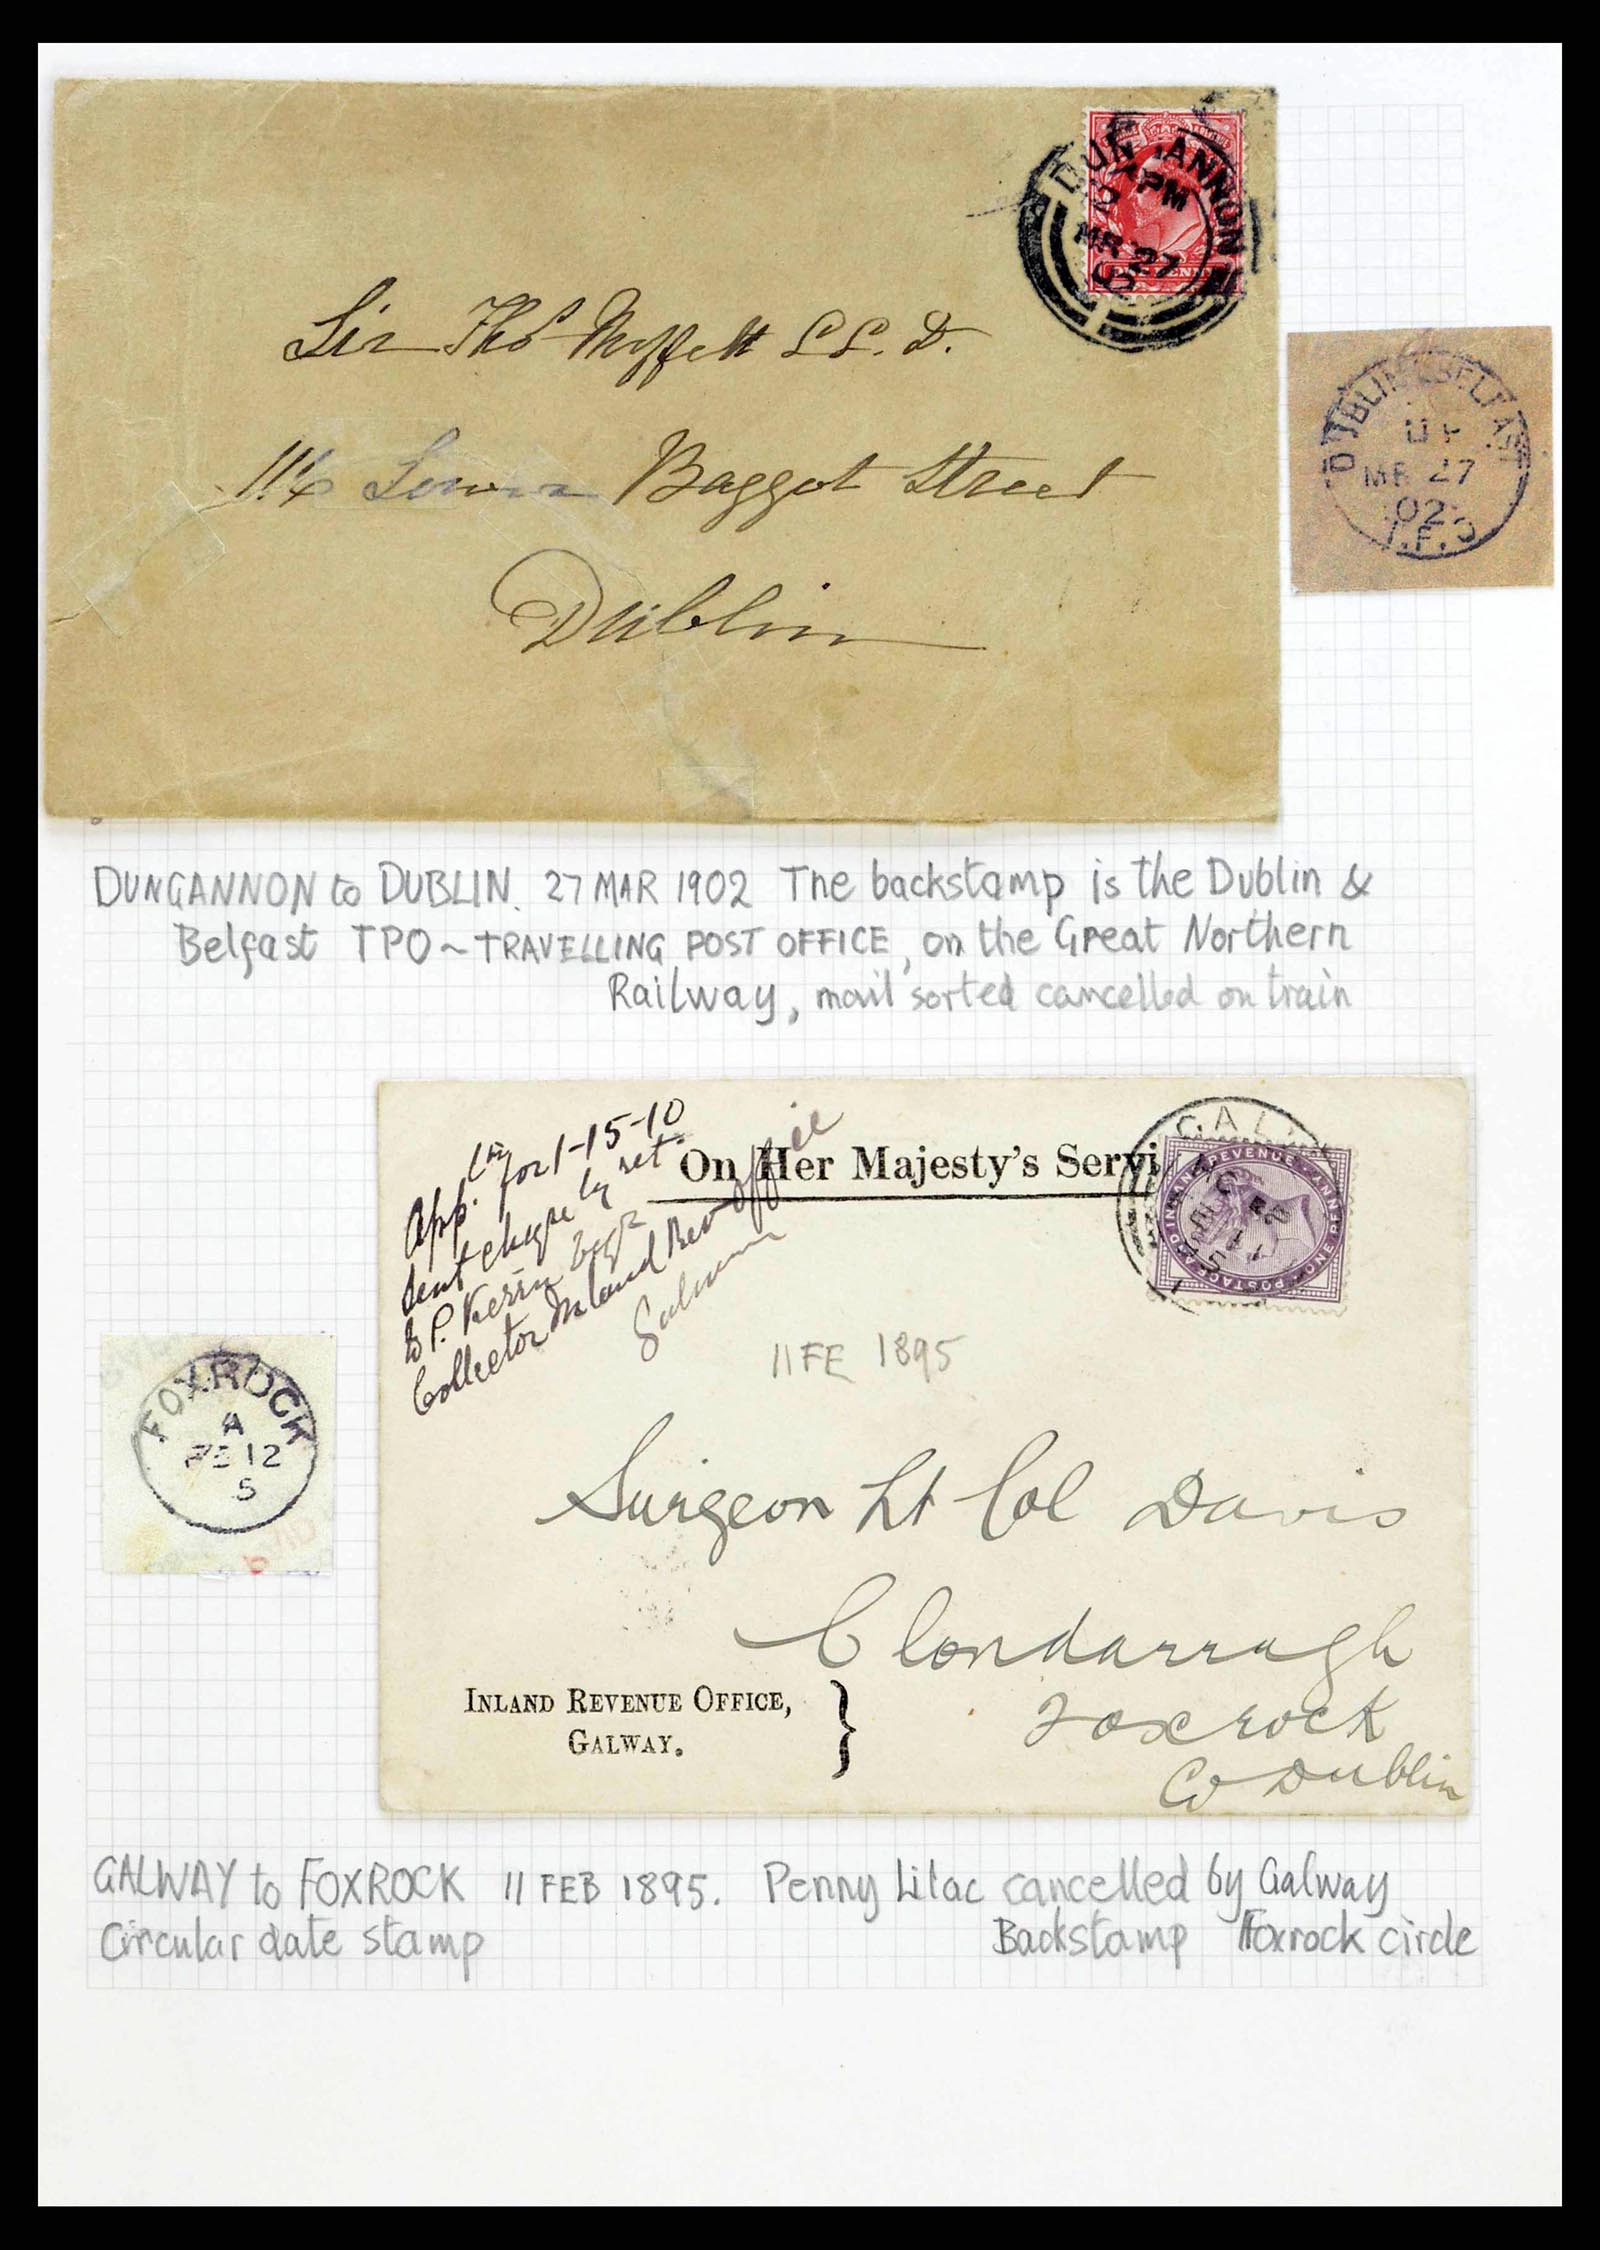 DUNGANNON
PM
MR 27
02
Sir Thos Moffett LL.D.
116 Lower Baggot Street
Dublin
DUBLIN & BELFAST
MR 27
02
T.P.O
DUNGANNON to DUBLIN. 27 MAR 1902 The backstamp is the Dublin &
Belfast TPO ~ TRAVELLING POST OFFICE, on the Great Northern
Railway, mail sorted cancelled on train
On Her Majesty's Servi
App. for 1-15-10
sent by
to P.
Collector Inland Rev Office
Galway
GAL
POSTAGE AND INLAND REVENUE ONE PENNY
11 FE 1895
Surgeon Lt Col Davis
Clondarragh
Foxrock
Co Dublin
INLAND REVENUE OFFICE,
GALWAY.
FOXROCK
A
FE 12
5
GALWAY to FOXROCK 11 FEB 1895. Penny Lilac cancelled by Galway
Circular date stamp Backstamp Foxrock circle